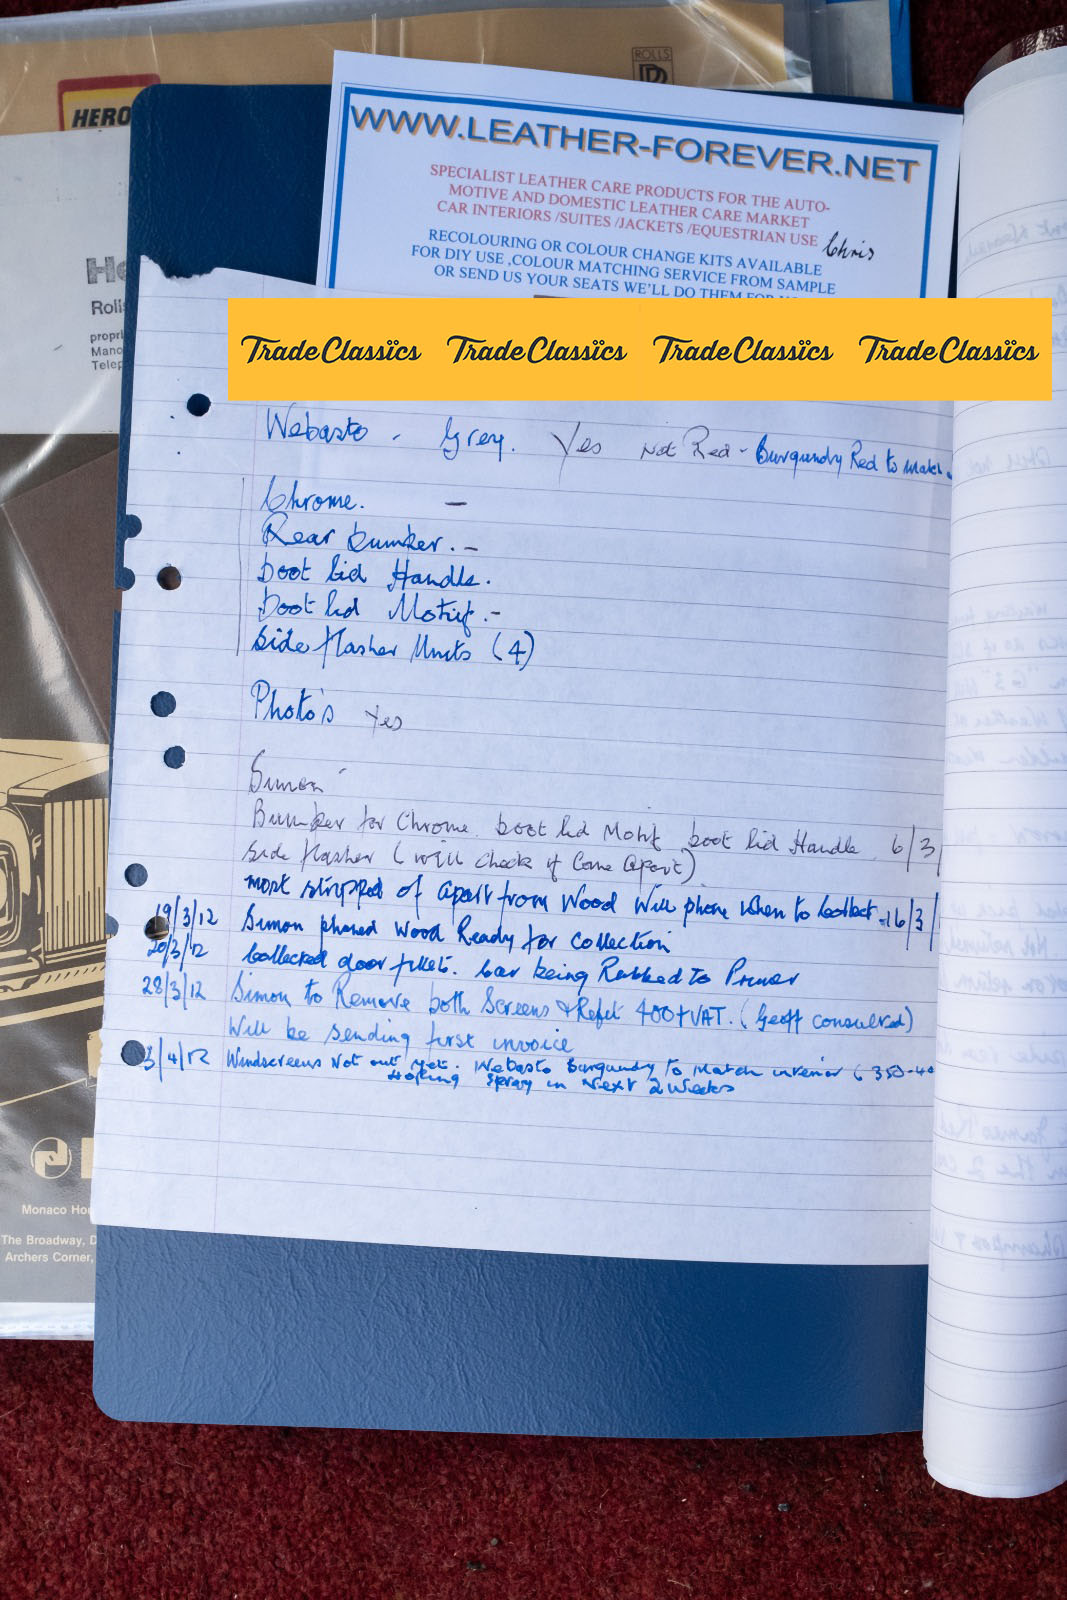 ROLLS
HERO
WWW.LEATHER-FOREVER.NET
SPECIALIST LEATHER CARE PRODUCTS FOR THE AUTO-
MOTIVE AND DOMESTIC LEATHER CARE MARKET
CAR INTERIORS /SUITES /JACKETS /EQUESTRIAN USE
Chris
RECOLOURING OR COLOUR CHANGE KITS AVAILABLE
FOR DIY USE ,COLOUR MATCHING SERVICE FROM SAMPLE
OR SEND US YOUR SEATS WE'LL DO THEM FOR
He
Rolls
propri
Mano
Telep
Trade Classics Trade Classics Trade Classics Trade Classics
Webasto - Grey. Yes Not Red - Burgundy Red to match
Chrome. -
Rear bumker. -
boot lid Handle.
boot lid Motif. -
Side flasher Units (4)
Photo's Yes
Simon
Bumker for Chrome. boot lid Motif boot lid Handle. 6/3/
Side flasher (will check if Come Apart)
most stripped of apart from Wood Will phone when to Collect - 16/3/
19/3/12 Simon phoned Wood Ready for collection
20/3/12 Collected door fillets. Car being Rubbed to Primer
28/3/12 Simon to Remove both Screens & Refit 400+VAT. (Geoff consulted)
Will be sending first invoice
3/4/12 Windscreens Not out yet. Webasto Burgundy to Match interior £350-40
Hoping Spray in Next 2 Weeks
Monaco Hou
The Broadway, D
Archers Corner,